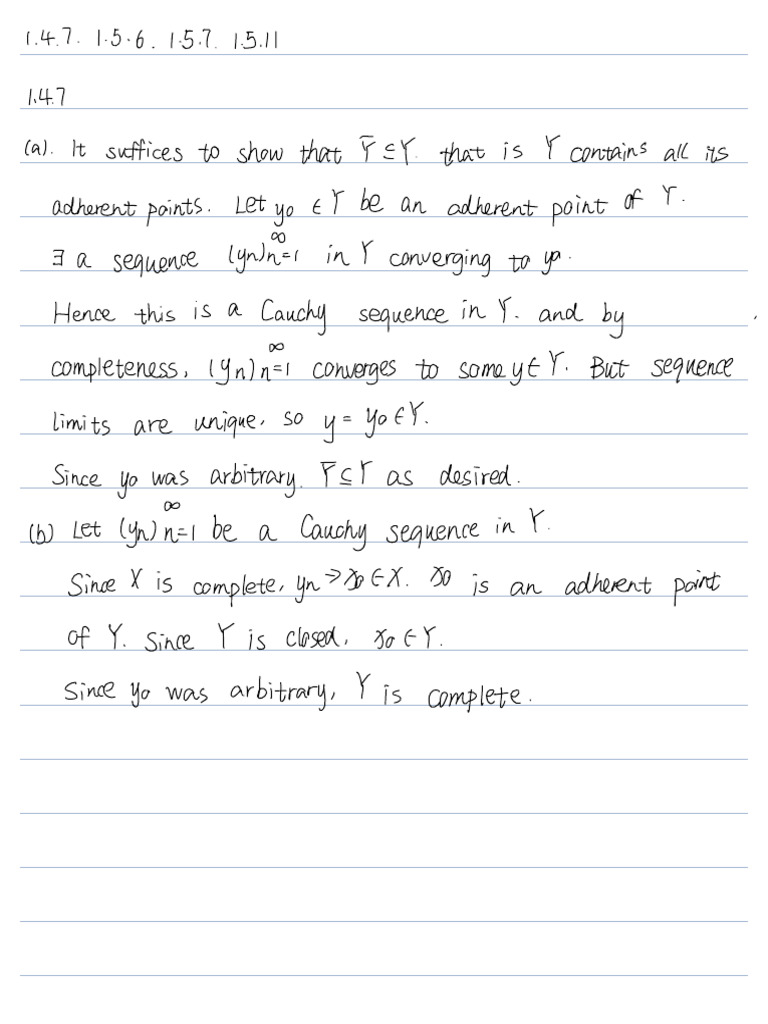 1.4.7. 1.5.6. 1.5.7. 1.5.11
1.4.7
(a). It suffices to show that Ȳ ⊆ Y. that is Y contains all its
adherent points. Let y₀ ∈ Y be an adherent point of Y.
∃ a sequence (yₙ)ₙ₌₁^∞ in Y converging to y₀.
Hence this is a Cauchy sequence in Y. and by
completeness, (yₙ)ₙ₌₁^∞ converges to some y ∈ Y. But sequence
limits are unique, so y = y₀ ∈ Y.
Since y₀ was arbitrary. Ȳ ⊆ Y as desired.
(b) Let (yₙ)ₙ₌₁^∞ be a Cauchy sequence in Y.
Since X is complete, yₙ → x₀ ∈ X. x₀ is an adherent point
of Y. Since Y is closed, x₀ ∈ Y.
Since y₀ was arbitrary, Y is complete.